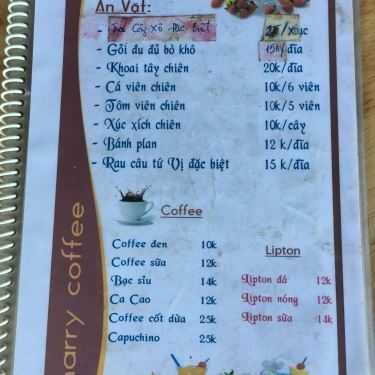 Ăn Vặt:
- Gỏi đu đủ bò khô 15k/đĩa
- Khoai tây chiên 20k/đĩa
- Cá viên chiên 10k/6 viên
- Tôm viên chiên 10k/5 viên
- Xúc xích chiên 10k/cây
- Bánh plan 12 k/đĩa
- Rau câu tứ Vị đặc biệt 15 k/đĩa
Coffee
Coffee đen 10k
Coffee sữa 12k
Bạc sỉu 14k
Ca Cao 12k
Coffee cốt dừa 25k
Capuchino 25k
Lipton
Lipton đá 12k
Lipton nóng 12k
Lipton sữa 14k
harry coffee